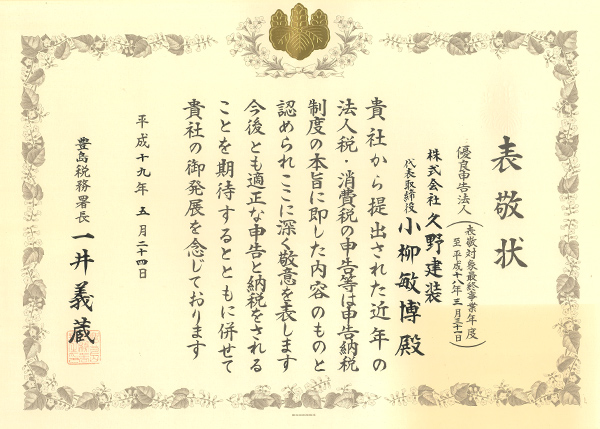 表敬状
優良申告法人
(表敬対象最終事業年度
至平成十八年三月三十一日)
株式会社 久野建装
代表取締役 小柳敏博殿
貴社から提出された近年の
法人税・消費税の申告等は申告納税
制度の本旨に即した内容のものと
認められここに深く敬意を表します
今後とも適正な申告と納税をされる
ことを期待するとともに併せて
貴社の御発展を念じております
平成十九年五月二十四日
豊島税務署長 一井義蔵